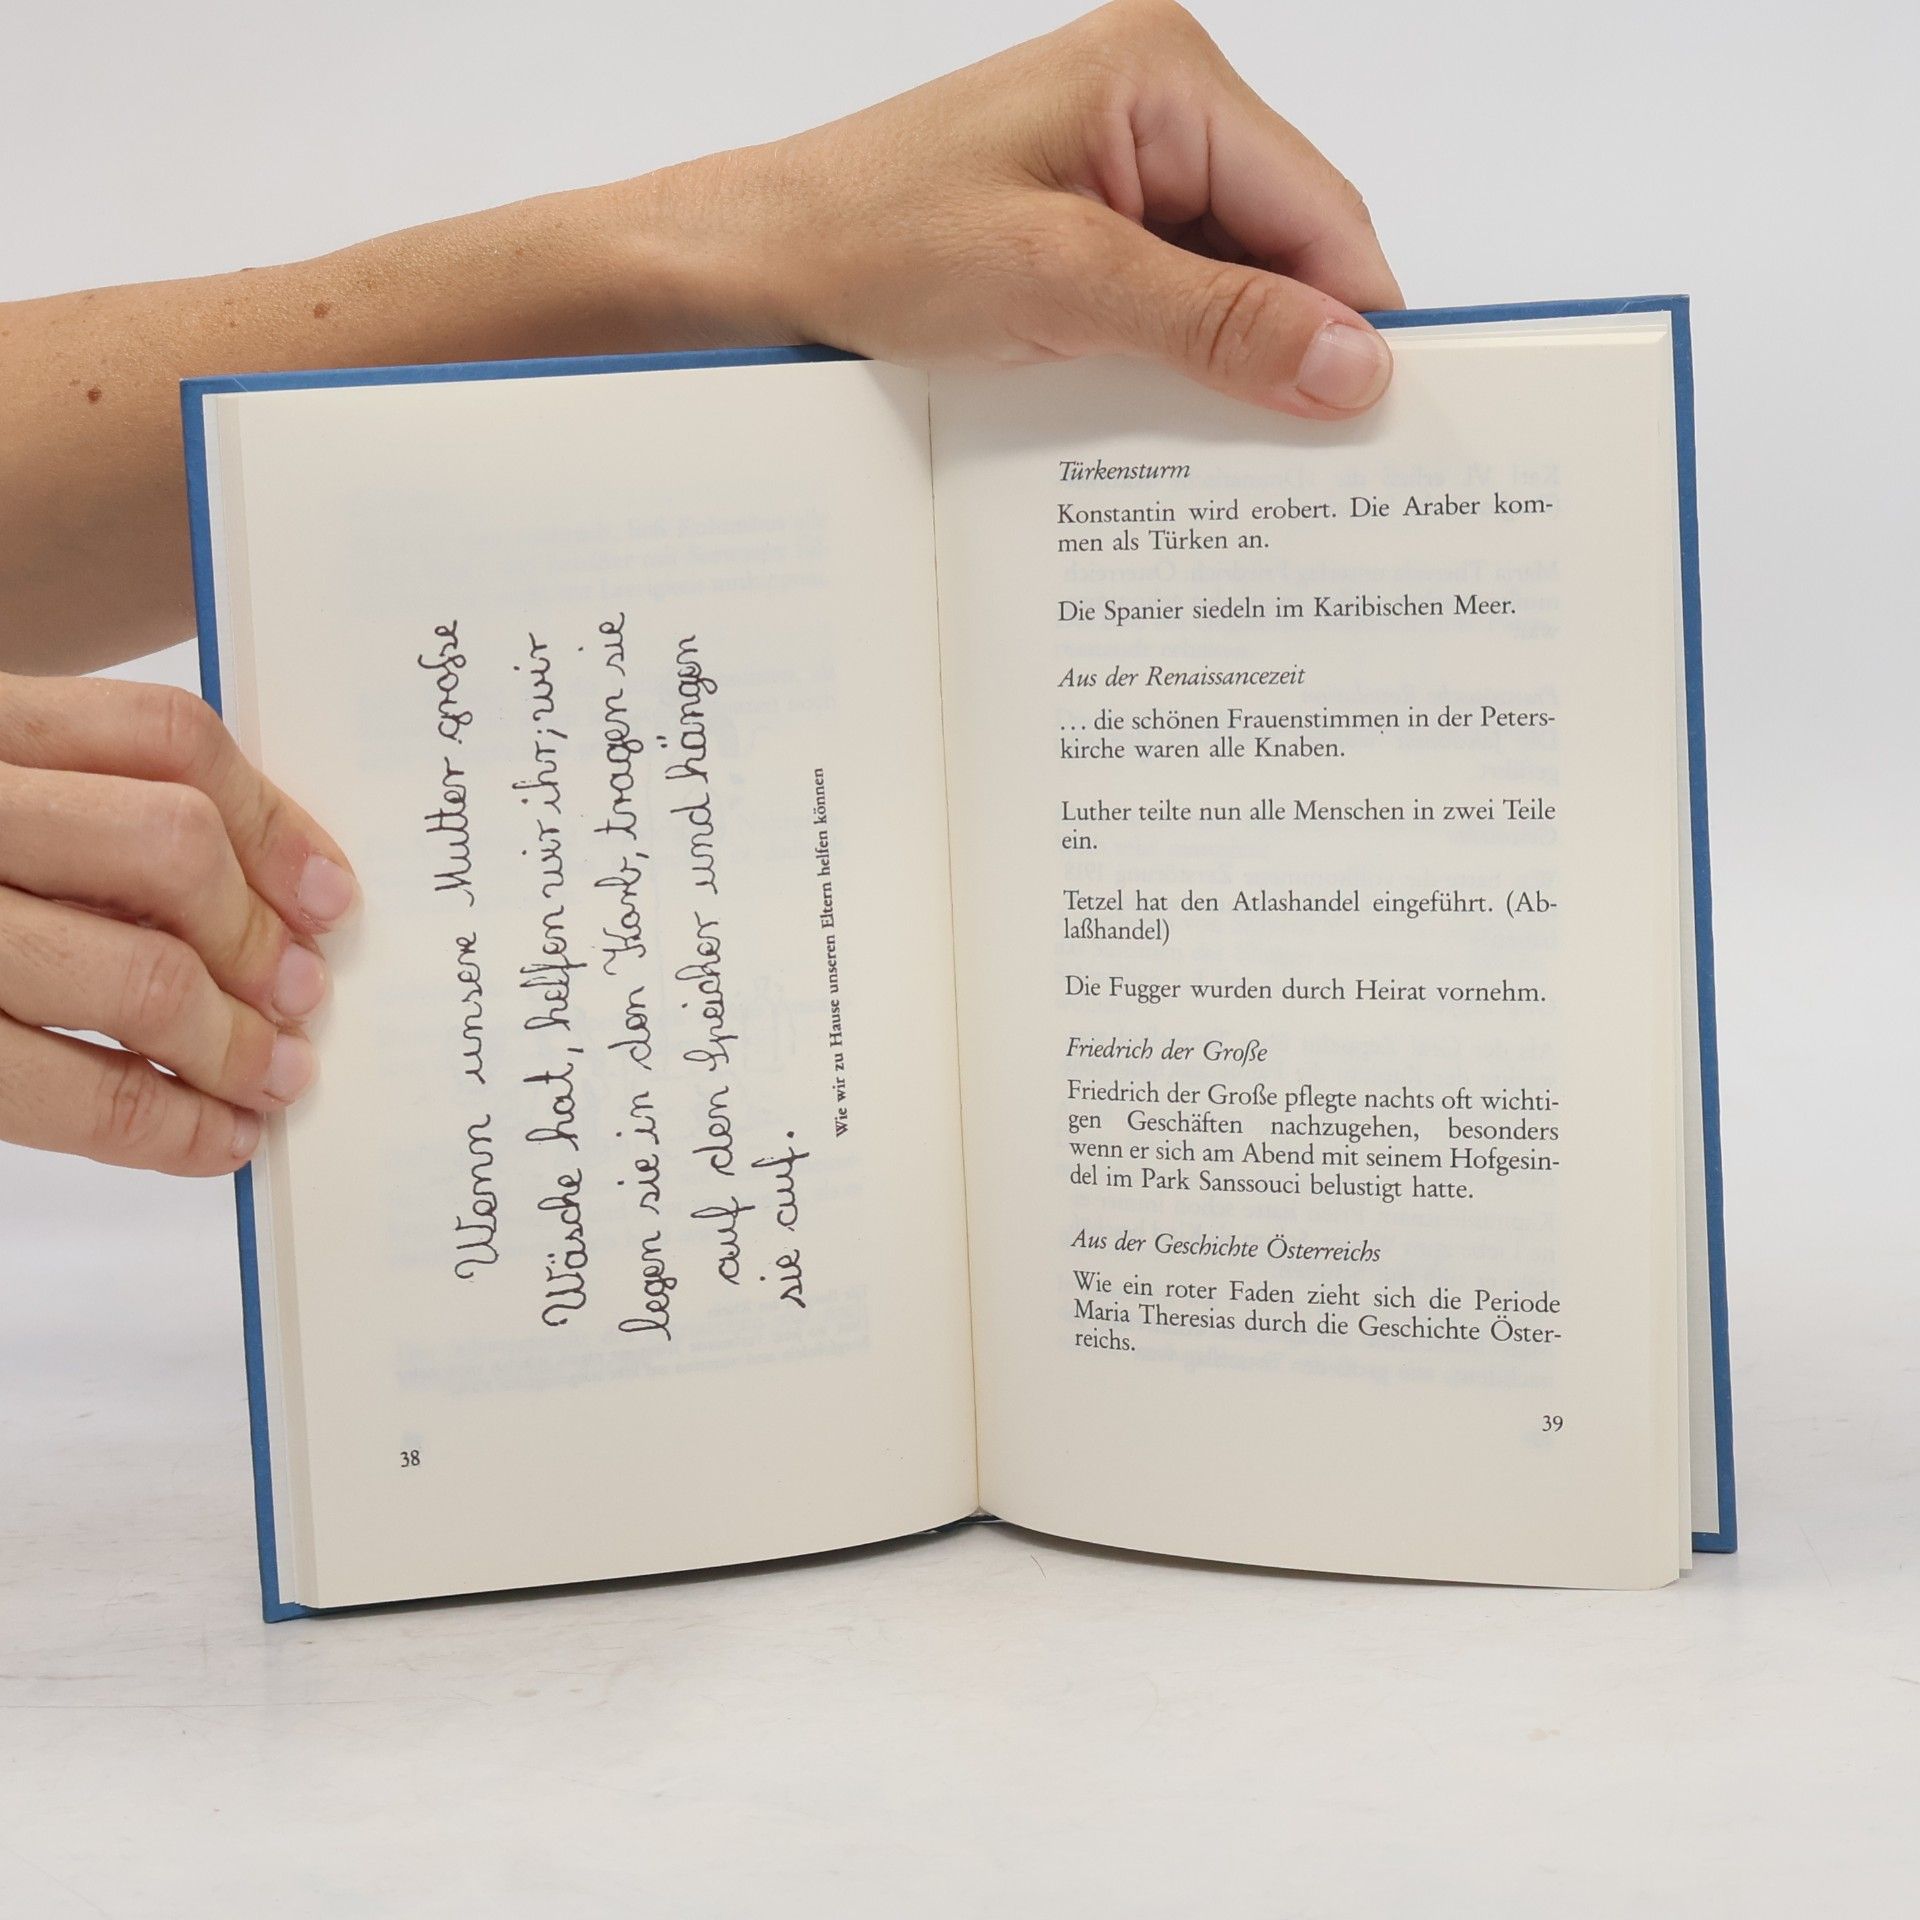 Wenn unsere Mutter große
Wäsche hat, helfen wir ihr; wir
legen sie in den Korb, tragen sie
auf den Speicher und hängen
sie auf.
Wie wir zu Hause unseren Eltern helfen können
38
Türkensturm
Konstantin wird erobert. Die Araber kom-
men als Türken an.
Die Spanier siedeln im Karibischen Meer.
Aus der Renaissancezeit
... die schönen Frauenstimmen in der Peters-
kirche waren alle Knaben.
Luther teilte nun alle Menschen in zwei Teile
ein.
Tetzel hat den Atlashandel eingeführt. (Ab-
laßhandel)
Die Fugger wurden durch Heirat vornehm.
Friedrich der Große
Friedrich der Große pflegte nachts oft wichti-
gen Geschäften nachzugehen, besonders
wenn er sich am Abend mit seinem Hofgesin-
del im Park Sanssouci belustigt hatte.
Aus der Geschichte Österreichs
Wie ein roter Faden zieht sich die Periode
Maria Theresias durch die Geschichte Öster-
reichs.
39